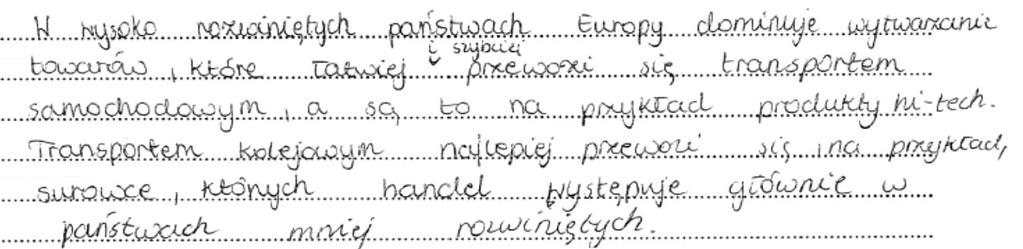 W wysoko rozwiniętych państwach Europy dominuje wytwarzanie
towarów, które łatwiej i szybciej przewozi się transportem
samochodowym, a są to na przykład produkty hi-tech.
Transportem kolejowym najlepiej przewozi się, na przykład,
surowce, których handel występuje głównie w
państwach mniej rozwiniętych.